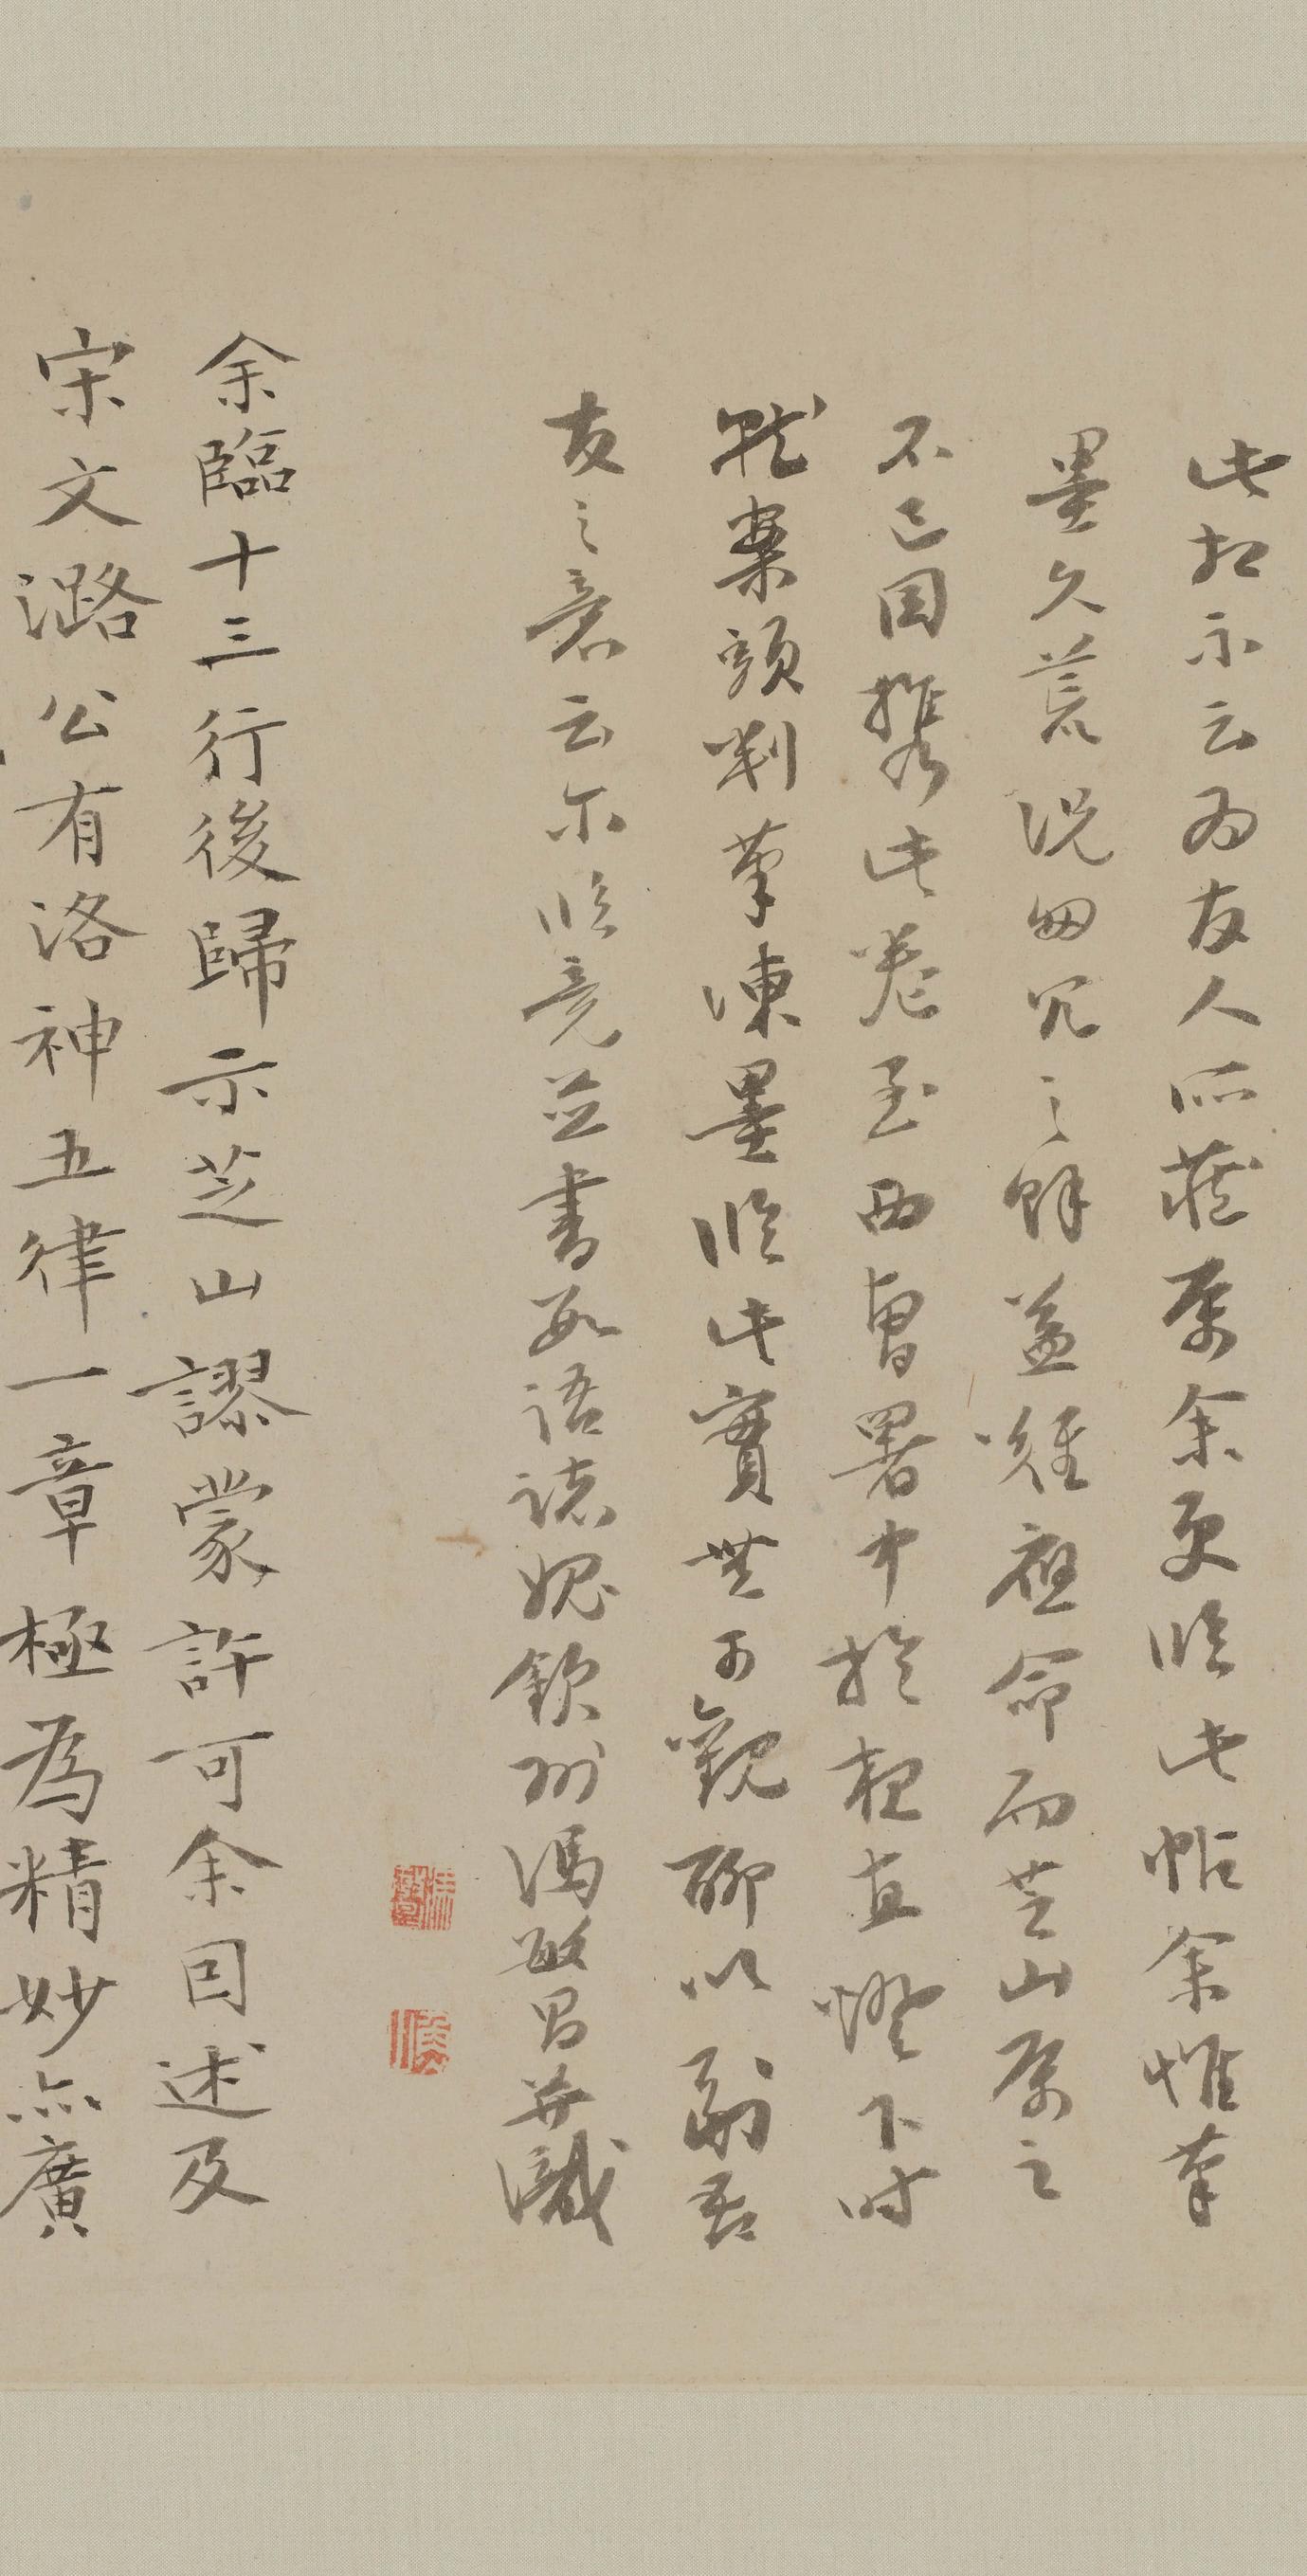 此相示云為友人所藏屬余更臨此帖余惟筆
墨久荒況匆冗之餘益難應命而芝山屬之
不已因携此卷至西曹署中於夜直燈下時
就案頭判筆凍墨臨此實無可觀聊以副吾
友之意云尔臨竟並書數語誌媿欽州馮敏昌并識
余臨十三行後歸示芝山謬蒙許可余因述及
宋文潞公有洛神五律一章極為精妙亦廣